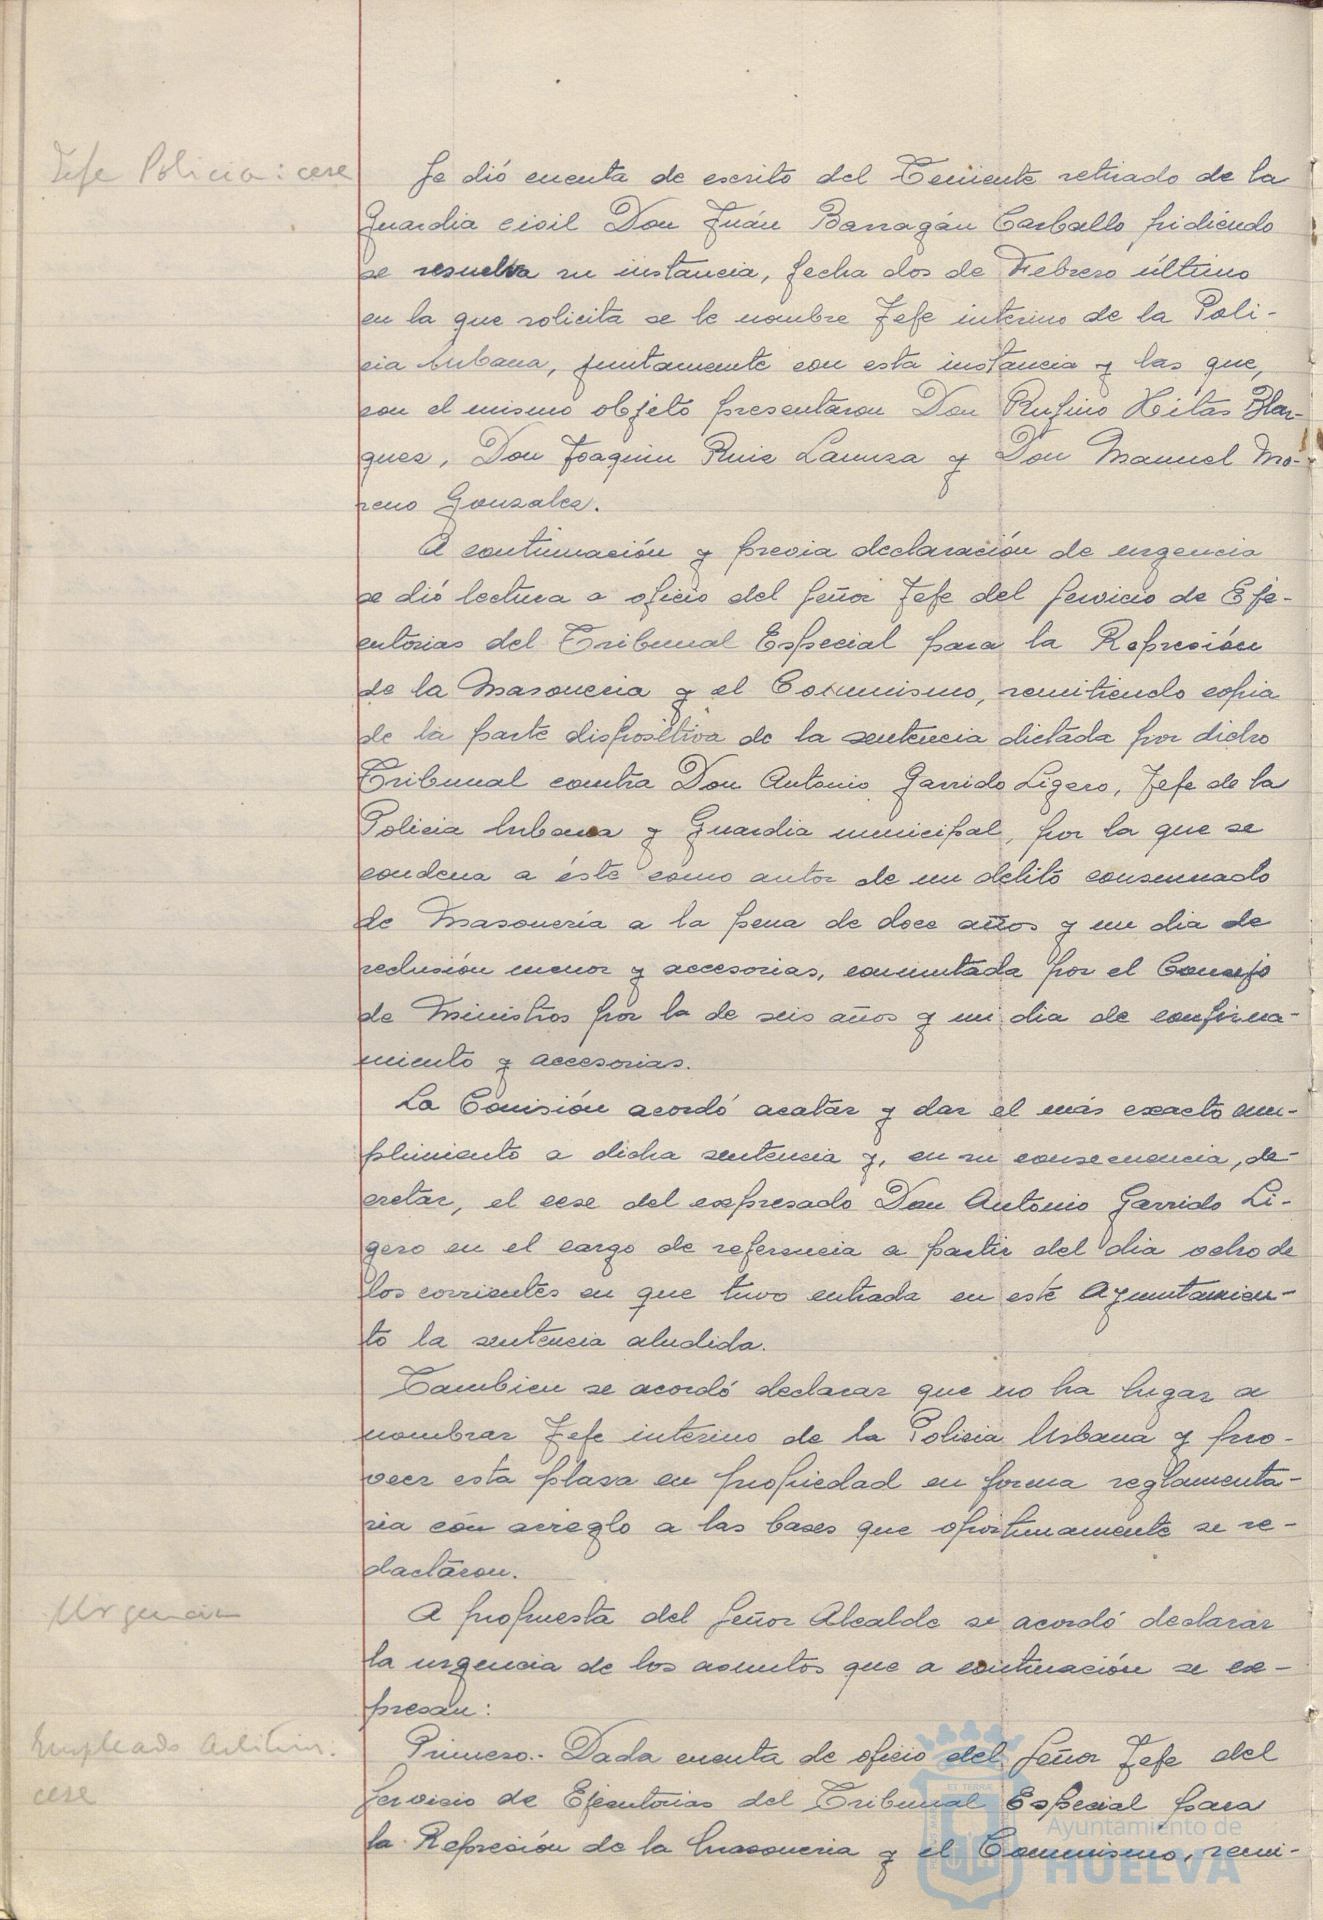 Jefe Policia: cese
Se dió cuenta de escrito del Teniente retirado de la
Guardia civil Don Juán Barragán Carballo pidiendo
se resuelva su instancia, fecha dos de Febrero último
en la que solicita se le nombre Jefe interino de la Poli-
cia Urbana, juntamente con esta instancia y las que,
con el mismo objeto presentaron Don Rufino Hitas Blaz-
quez, Don Joaquin Ruiz Lanuza y Don Manuel Mo-
reno Gonzalez.
A continuación y previa declaración de urgencia
se dió lectura a oficio del Señor Jefe del Servicio de Eje-
cutorias del Tribunal Especial para la Represión
de la Masoneria y el Comunismo, remitiendo copia
de la parte dispositiva de la sentencia dictada por dicho
Tribunal contra Don Antonio Garrido Ligero, Jefe de la
Policia Urbana y Guardia municipal, por la que se
condena a éste como autor de un delito consumado
de Masonería a la pena de doce años y un dia de
reclusión menor y accesorias, conmutada por el Consejo
de Ministros por la de seis años y un dia de confina-
miento y accesorias.
La Comisión acordó acatar y dar el más exacto cum-
plimiento a dicha sentencia y, en su consecuencia, de-
cretar, el cese del expresado Don Antonio Garrido Li-
gero en el cargo de referencia a partir del dia ocho de
los corrientes en que tuvo entrada en este Ayuntamien-
to la sentencia aludida.
Tambien se acordó declarar que no ha lugar a
nombrar Jefe interino de la Policia Urbana y pro-
veer esta plaza en propiedad en forma reglamenta-
ria con arreglo a las bases que oportunamente se re-
dactaron.
Urgencia
A propuesta del Señor Alcalde se acordó declarar
la urgencia de los asuntos que a continuación se ex-
presan:
Empleado Arbitrios.
cese
Primero.- Dada cuenta de oficio del Señor Jefe del
Servicio de Ejecutorias del Tribunal Especial para
la Represión de la masoneria y el Comunismo, remi-
Ayuntamiento de
HUELVA